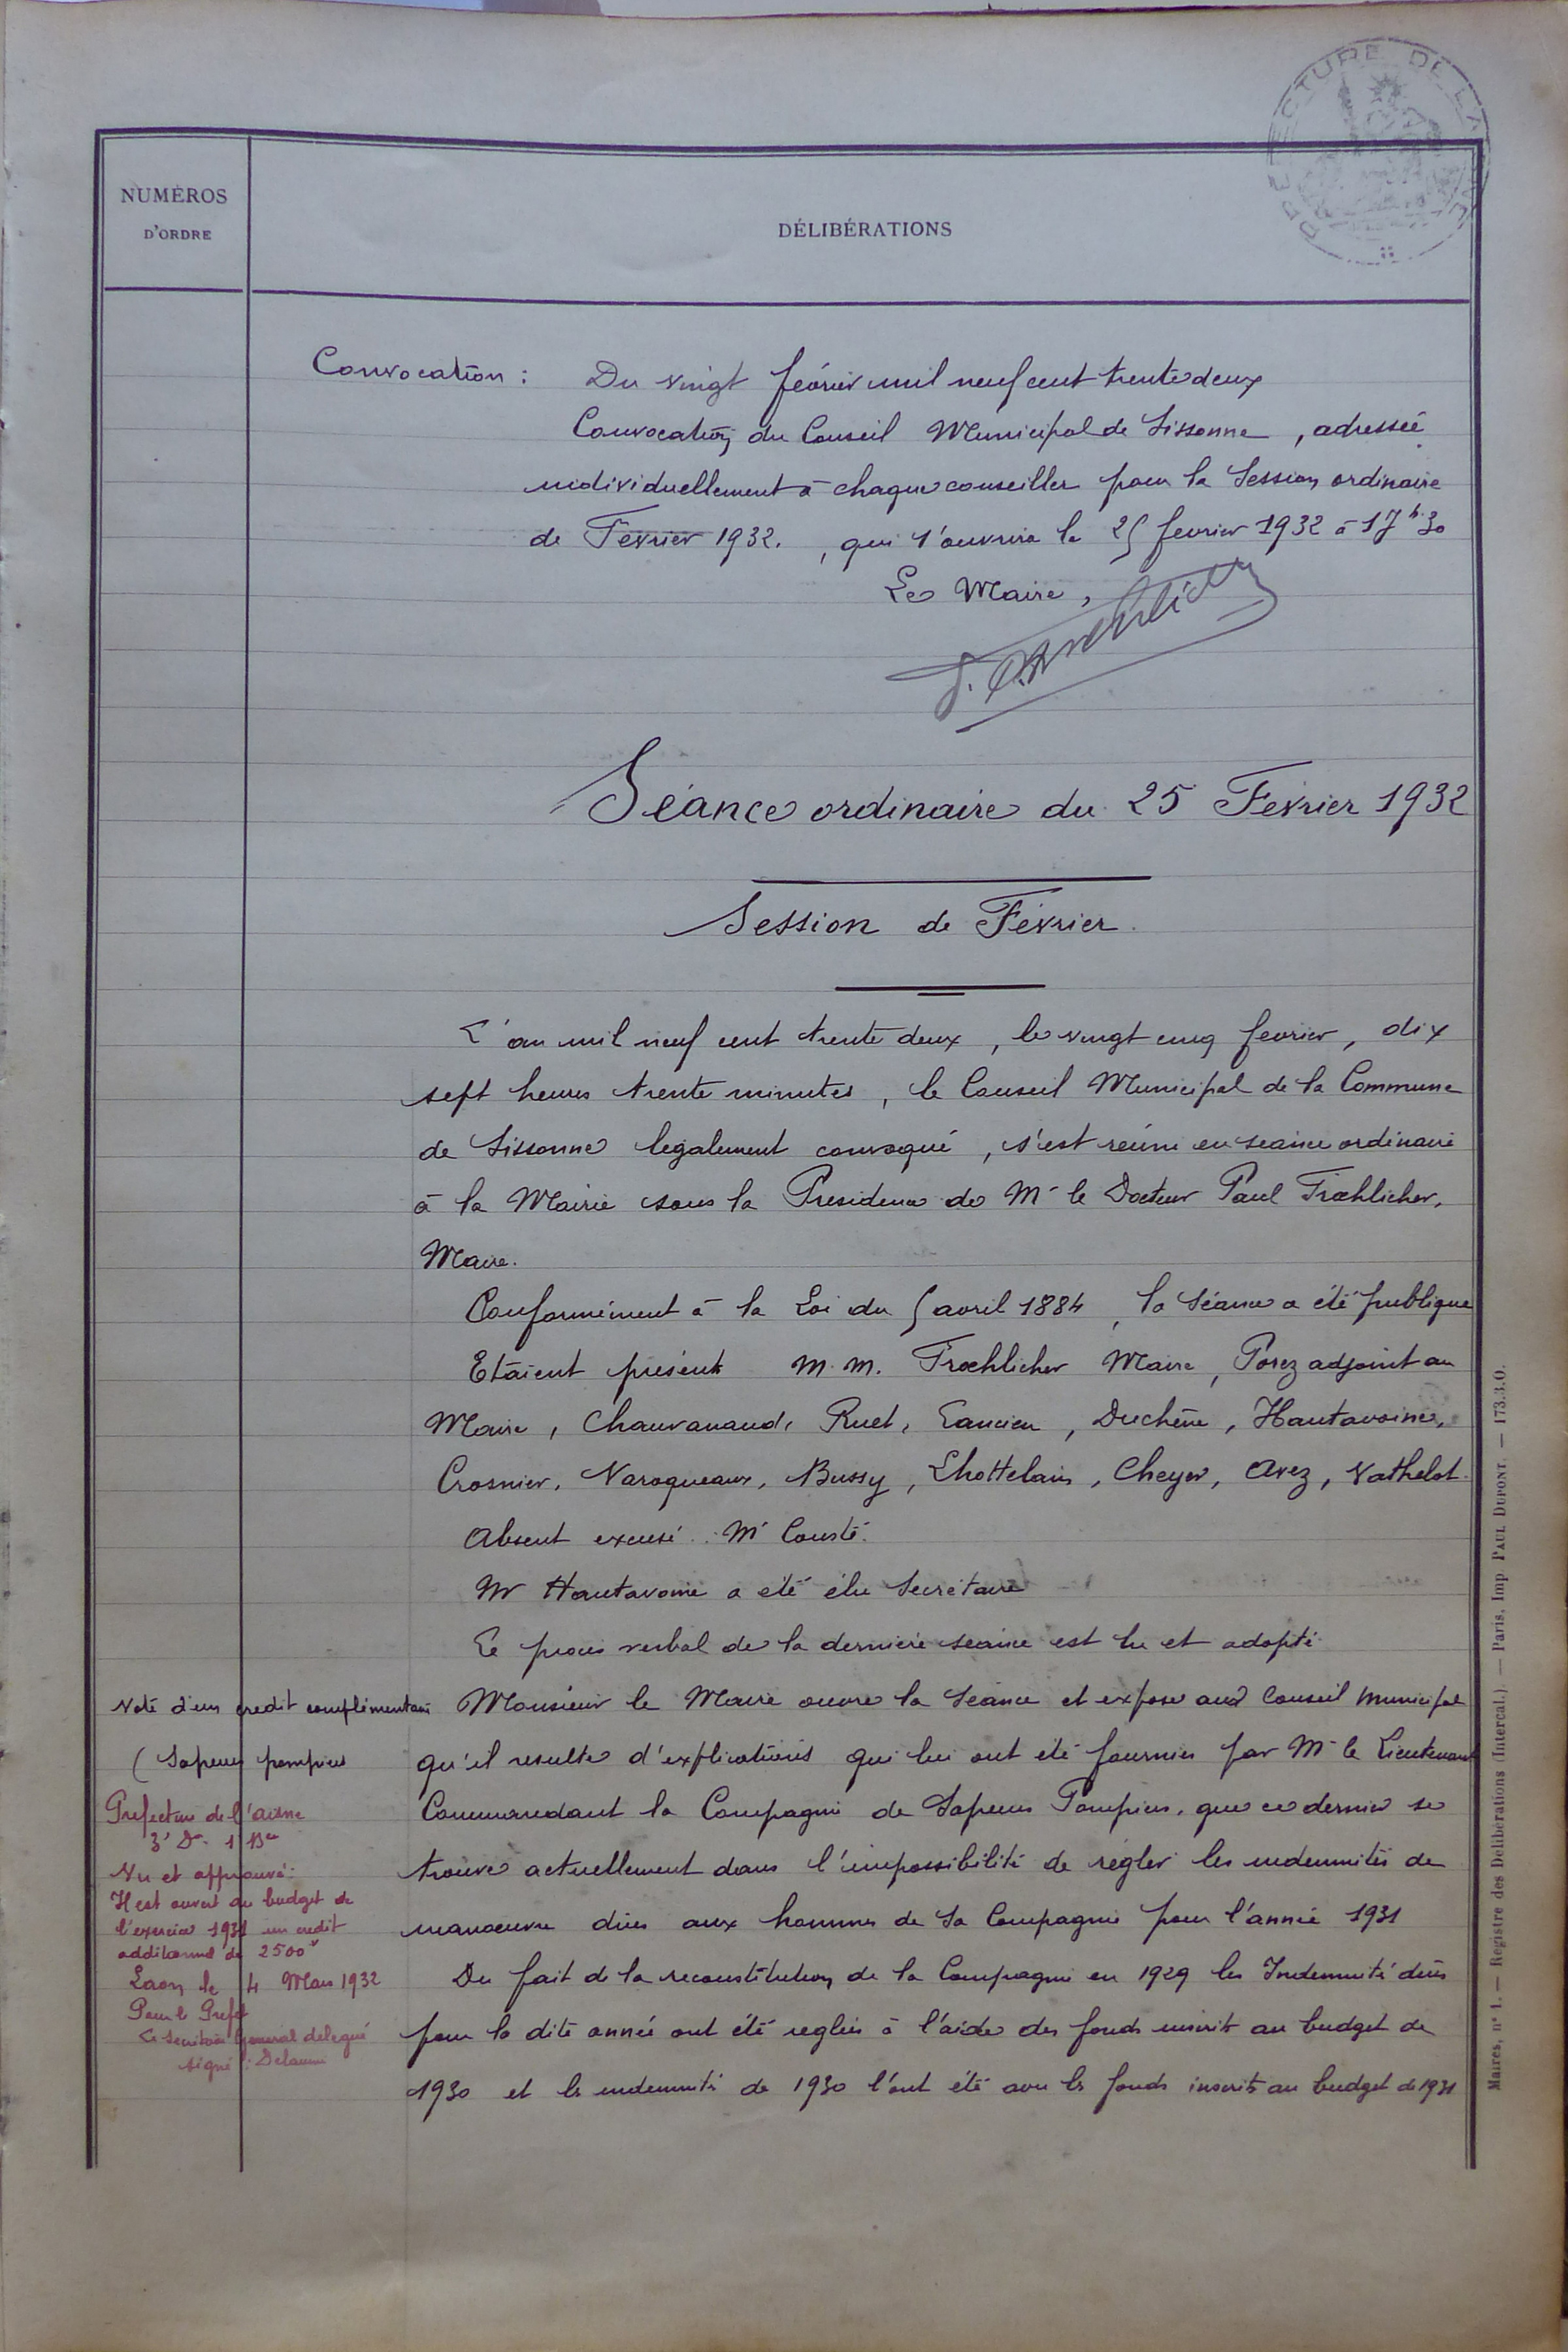 PRÉFECTURE DE L'AISNE
NUMÉROS
D'ORDRE
DÉLIBÉRATIONS
Convocation : Du vingt février mil neuf cent trente deux
Convocation du Conseil Municipal de Sissonne, adressée
individuellement à chaque conseiller pour la Session ordinaire
de Février 1932. , qui s'ouvrira le 25 fevrier 1932 à 17h30
Le Maire,
Séance ordinaire du 25 Février 1932
Session de Février.
L'an mil neuf cent trente deux, le vingt cinq fevrier, dix
sept heures trente minutes, le Conseil Municipal de la Commune
de Sissonne légalement convoqué, s'est réuni en séance ordinaire
à la Mairie sous la Présidence de Mr le Docteur Paul Froehlicher,
Maire.
Conformément à la Loi du 5 avril 1884, la Séance a été publique
Etaient présents M.M. Froehlicher Maire, Porez adjoint au
Maire, Chauvanaud, Ruet, Lancien, Duchêne, Hautavoine,
Crosnier, Naroqueaux, Bussy, Lhottelain, Cheyer, Avez, Vathelot.
Absent excusé. Mr Cousté.
Mr Hautavoine a été élu Secrétaire
Le procès verbal de la dernière séance est lu et adopté.
Vote d'un credit complémentaire
(Sapeurs pompiers
Préfecture de l'Aisne
3e Don 1 Bau
Vu et approuvé :
Il est ouvert au budget de
l'exercice 1931 un credit
additionnel de 2500f
Laon le 4 Mars 1932
Pour le Préfet
Le Secrétaire Général délégué
signé : Delaune
Monsieur le Maire ouvre la Séance et expose au Conseil Municipal
qu'il resulte d'explications qui lui ont été fournies par Mr le Lieutenant
Commandant la Compagnie de Sapeurs Pompiers, que ce dernier se
trouve actuellement dans l'impossibilité de régler les indemnités de
manoeuvre dues aux hommes de sa Compagnie pour l'année 1931
Du fait de la reconstitution de la Compagnie en 1929 les Indemnités dues
pour la dite année ont été reglées à l'aide des fonds inscrits au budget de
1930 et les indemnités de 1930 l'ont été avec les fonds inscrits au budget de 1931
Maires, n° 1. — Registre des Délibérations (Intercal.). — Paris, Imp. PAUL DUPONT. — 173.3.O.